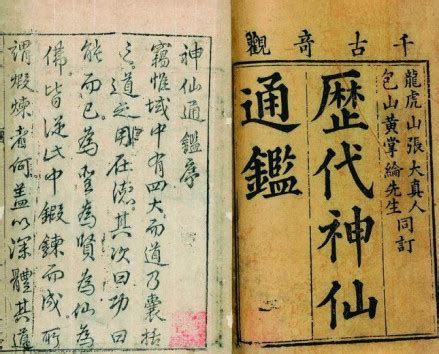 千古奇觀
龍虎山張大真人
包山黃掌綸先生
同訂
歷代神仙
通鑑
神仙通鑑序
竊惟域中有四大而道乃囊括
之道之用在德其次曰功曰
能而已為聖為賢為仙為
佛皆從此中鍛鍊而成所
謂煅煉者何蓋以深體其道